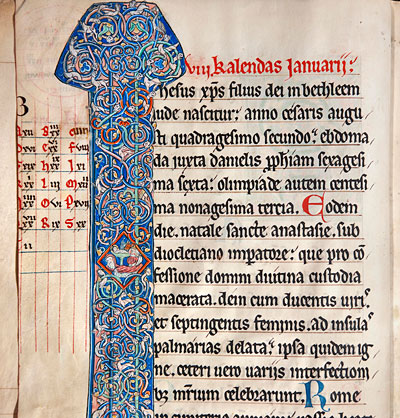 viij kalendas Januarij:
hesus xp̄s filius dei in bethleem
iude nascitur: anno cesaris augu
sti quadragesimo secundo: ebdoma
da juxta danielis ꝓphiam sexagesi
ma sexta: olimpiade autem centesi
ma nonagesima tercia. Eodem
die. natale sancte anastasie. sub
diocletiano imꝑatore: que pro cō
fessione domini diutina custodia
macerata. dein cum ducentis uiris.
et septingentis feminis. ad insulas
palmarias delata: ipsa quidem ig
ne. ceteri uero uarijs interfectioni
bus mr̄ium celebrarunt. Rome